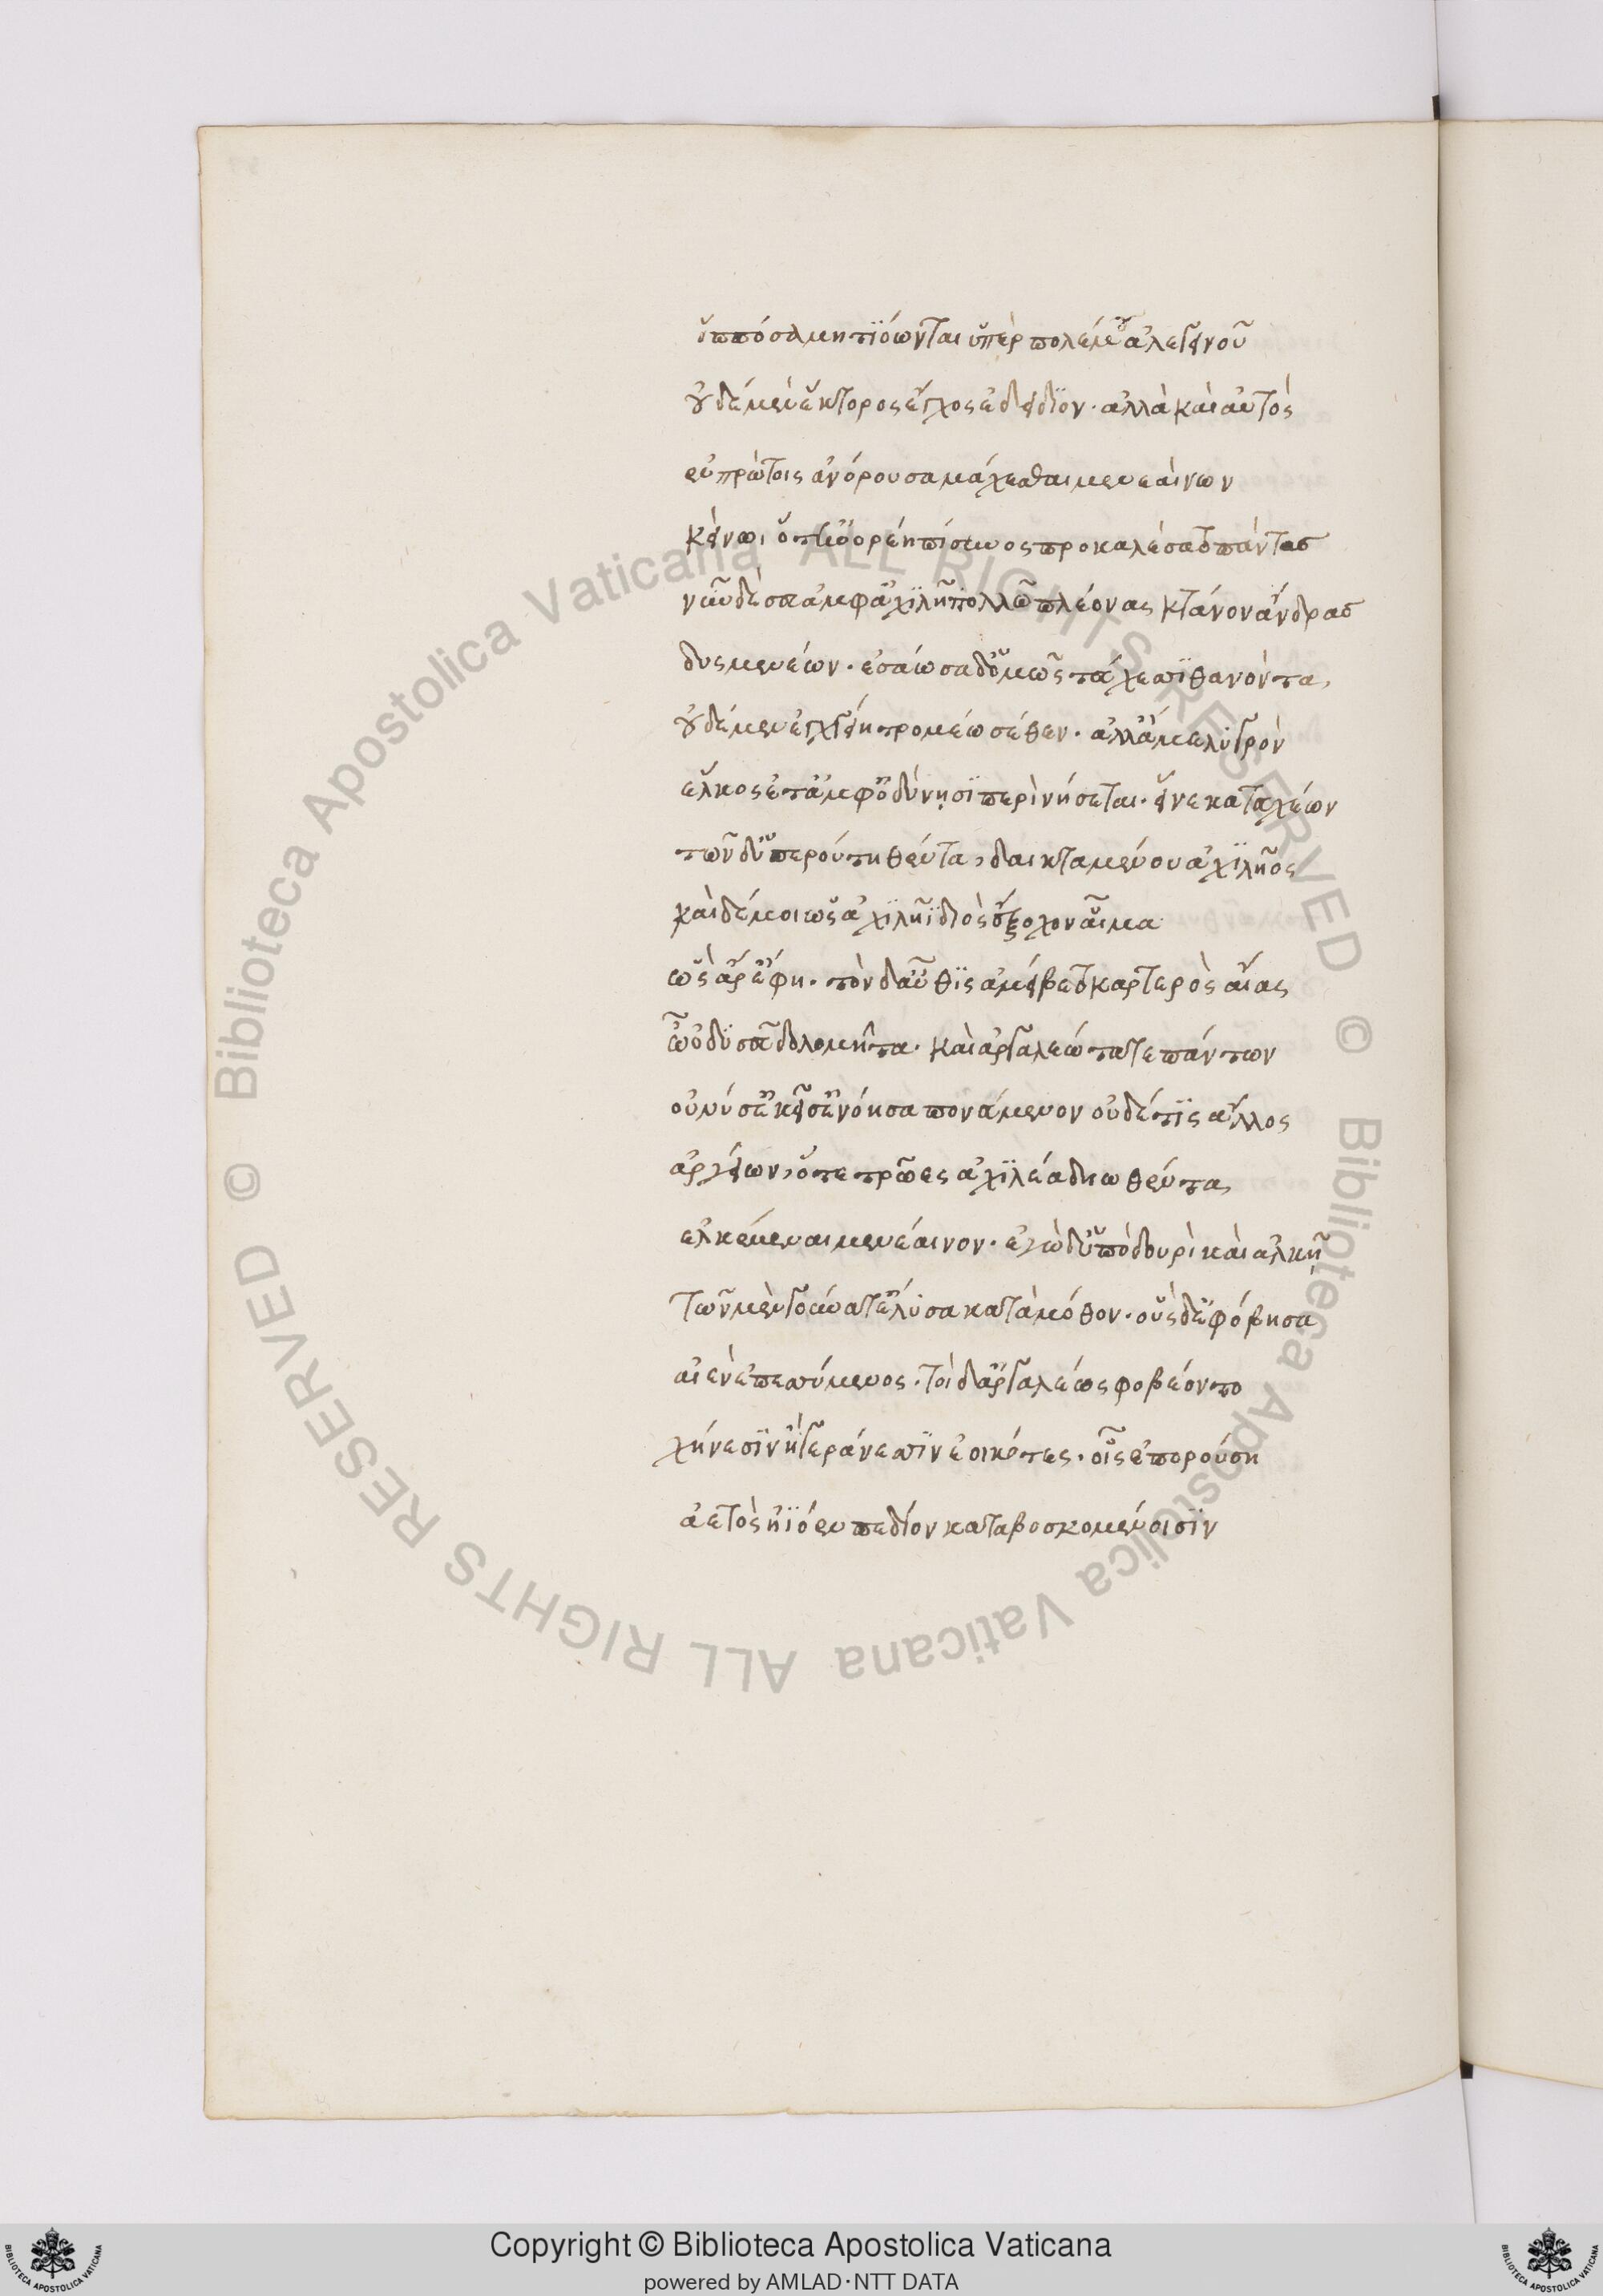 ὁππόσα μητιόωνται ὑπὲρ πολέμου ἀλεγεινοῦ
οὐδέ μεν ἕκτορος ἔγχος ἐδείδιον· ἀλλὰ καὶ αὐτὸς
ἐν πρώτοις ἀνόρουσα μάχεσθαι μενεαίνων
κείνωι ὅτ' ἠνορέη πίσυνος προκαλέσατο πάντας
νῦν δέ σε ἀμφ' ἀχιλῆι πολλῶ πλέονας κτάνον ἄνδρας
δυσμενέων· ἐσάωσα δ' ὁμῶς τάχεσι θανόντα,
οὐδέ μεν ἐγχείη τρομέω σέθεν· ἀλλά με λυγρὸν
ἕλκος ἔτ' ἀμφ' ὀδύνῃσι περινήσεται· εἵνεκα τευχέων
τῶνδ' ὕπερ οὐτηθέντα, δαικταμένου ἀχιλῆος
καὶ δέ μοι ὡς ἀχιλῆι διὸς ἔξοχον αἷμα
ὣς ἄρ' ἔφη· τὸν δ' αὖθις ἀμείβετο καρτερὸς αἴας
ὦ ὀδυσεῦ δολομῆτα· καὶ ἀργαλεώτατε πάντων
οὔ νύ σ' ἔγωγ' ἐνόησα πονάμενον οὐδέ τις ἄλλος
ἀργείων, ὅτε τρῶες ἀχιλέα δηωθέντα,
ἑλκέμεναι μενέαινον· ἐγὼ δ' ὑπὸ δουρὶ καὶ ἀλκῇ
τῶν μὲν γούνατ' ἔλυσα κατὰ μόθον· οὓς δ' ἐφόβησα
αἰὲν ἐπεσσύμενος· τοὶ δ' ἀργαλέως φοβέοντο
χήνεσιν ἢ γεράνεσσιν ἐοικότες· οἷς ἐπορούση
ἀετὸς ἠιόεν πεδίον καταβοσκομένοισιν
Copyright © Biblioteca Apostolica Vaticana
powered by AMLAD·NTT DATA